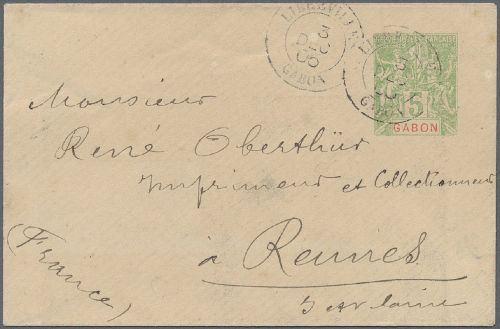 LIBREVILLE
GABON
5
GABON
Monsieur
René Oberthür
Imprimeur et Collectionneur
à Rennes
(France)